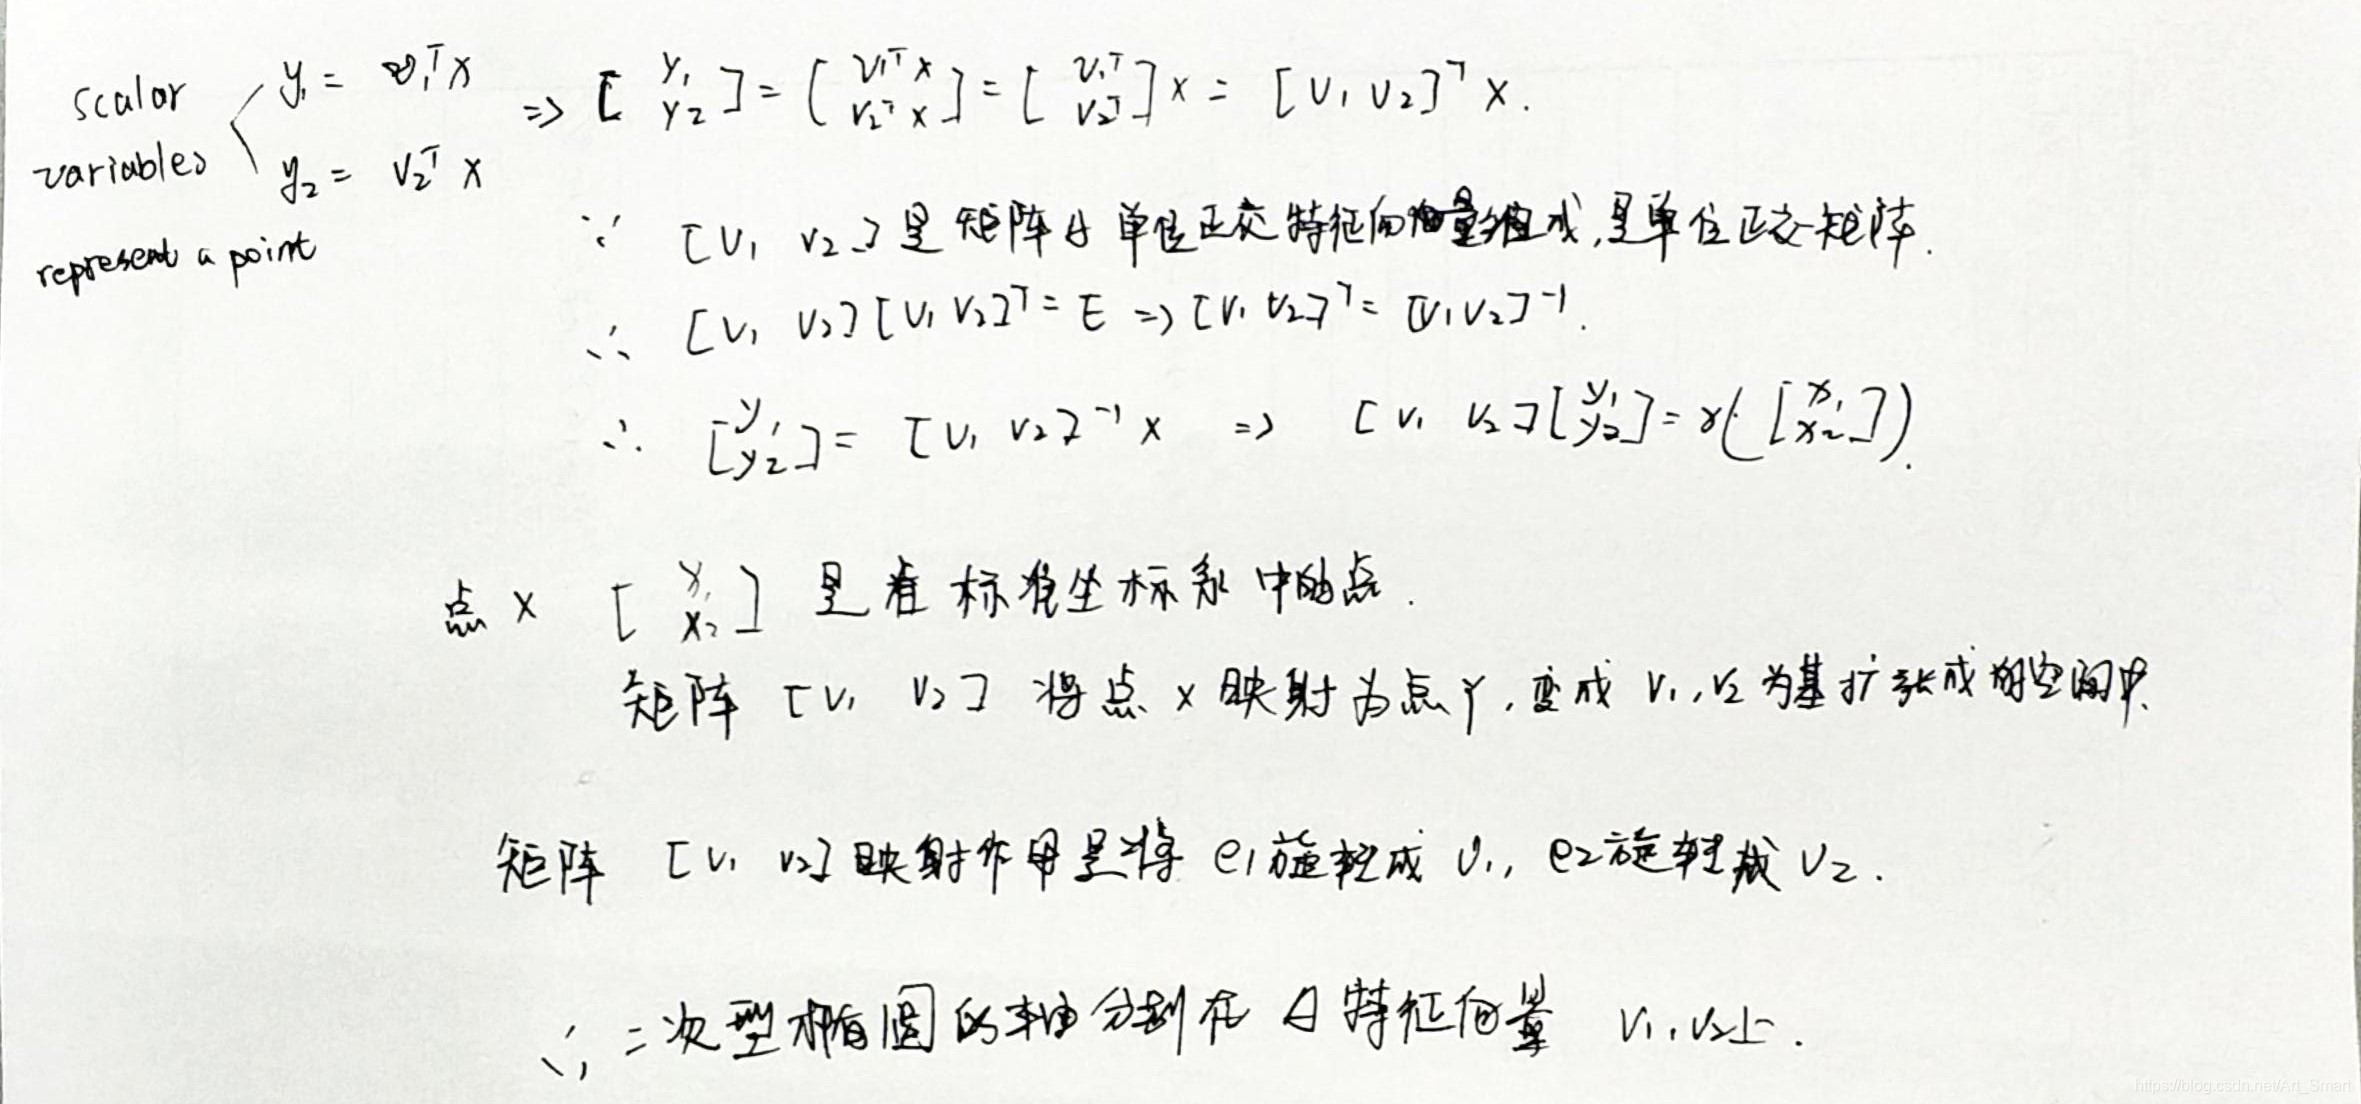 scalar variables represent a point
y₁ = v₁ᵀx
y₂ = v₂ᵀx
⇒ [y₁ y₂] = [v₁ᵀx v₂ᵀx] = [v₁ᵀ v₂ᵀ]x = [v₁ v₂]ᵀ x.
∵ [v₁ v₂]是矩阵A单位正交特征向量组成,是单位正交矩阵.
∴ [v₁ v₂][v₁ v₂]ᵀ = E ⇒ [v₁ v₂]ᵀ = [v₁ v₂]⁻¹.
∴ [y₁ y₂] = [v₁ v₂]⁻¹ x ⇒ [v₁ v₂][y₁ y₂] = x([x₁ x₂]).
点x [x₁ x₂] 是在标准坐标系中的点.
矩阵 [v₁ v₂] 将点x映射为点y,变成 v₁,v₂为基扩张成的空间中.
矩阵 [v₁ v₂]映射作用是将 e₁旋转成 v₁, e₂旋转成 v₂.
∴ 二次型椭圆的轴分别在 A特征向量 v₁,v₂上.
https://blog.csdn.net/Art_Smart